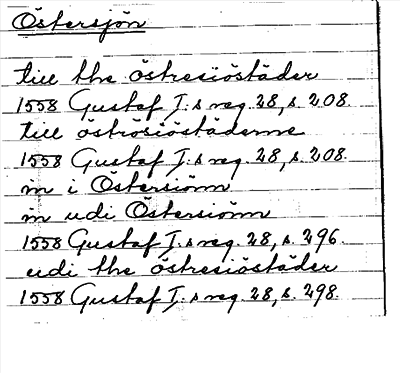 Östersjön
till the östresiöstäder
1558 Gustaf I.s reg. 28, s. 208.
till öströsiöstäderne
1558 Gustaf I.s reg. 28, s. 208.
in i Östersiönn
in udi Östersiönn
1558 Gustaf I.s reg. 28, s. 296.
udi the östresiöstäder
1558 Gustaf I.s reg. 28, s. 298.